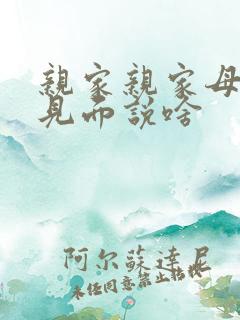 親家親家母
見面說啥
阿尔蘇達尼
未经同意禁止转载